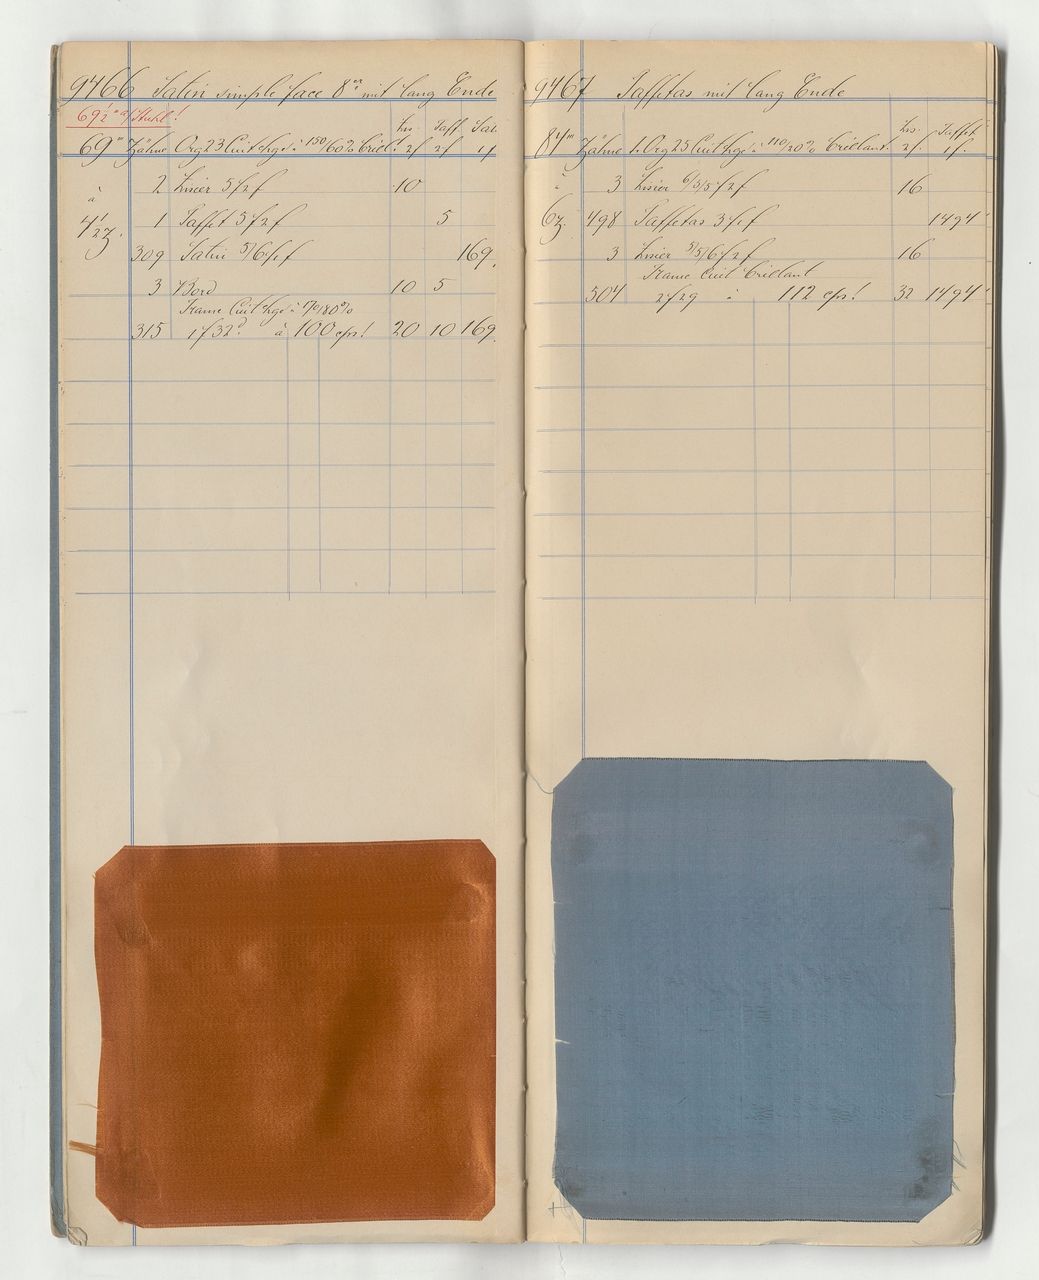 9466 Satin simple face 8er mit lang Ende
69 Stuhl!
Lis. Taff. Sat.
69''' Zähne Org 23 Cuit à 150/60% brill. 2f 2f 1f
à 2 Lisier 5/2f 10
4/27. 1 Taffet 5/2f 5
309 Satin 5/6/1f 169.
3 Bord 10 5
Trame Cuit à 170/180%
315 1f 32d. à 100 cps! 20 10 169.
9467 Taffetas mit lang Ende
Lis. Taffet.
84''' Zähne 1. Org 25 Cuit à 110/20% brillant. 2f. 1f.
à 3 Lisier 6/5/5/2f 16
6z. 498 Taffetas 3/1f 1494
3 Lisier 5/5/6/2f 16
Trame Cuit brillant
504 2f 29 à 112 cps! 32 1494